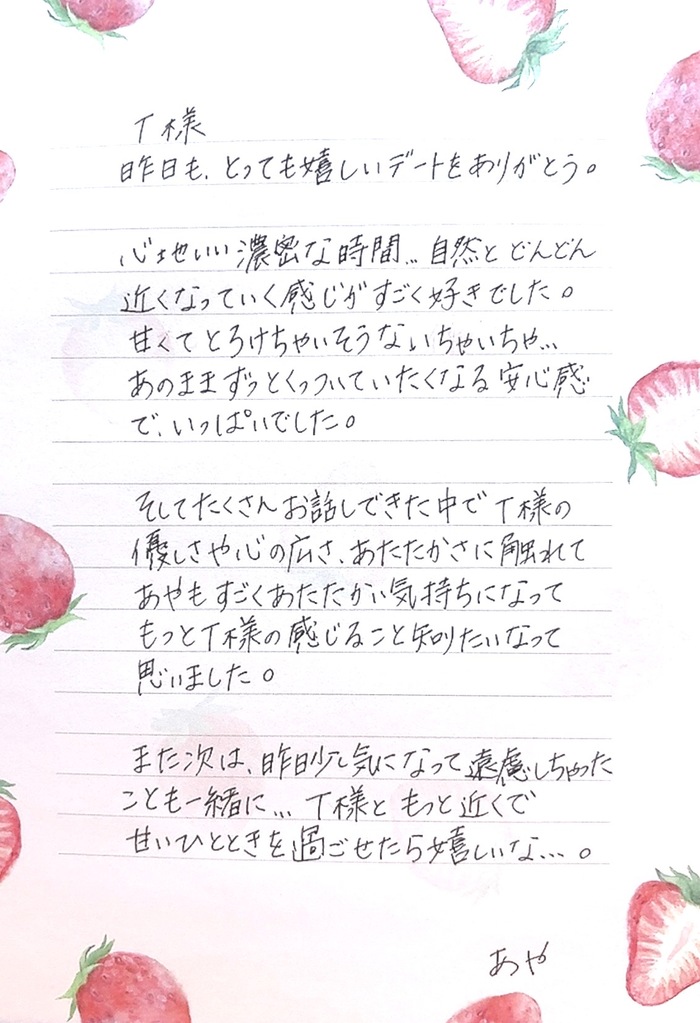 T様
昨日も、とっても嬉しいデートをありがとう。
心地いい濃密な時間… 自然と どんどん
近くなっていく感じがすごく好きでした。
甘くてとろけちゃいそうないちゃいちゃ…
あのままずっとくっついていたくなる安心感
で、いっぱいでした。
そしてたくさんお話しできた中でT様の
優しさや心の広さ、あたたかさに触れて
あやもすごくあたたかい気持ちになって
もっとT様の感じること知りたいなって
思いました。
また次は、昨日少し気になって遠慮しちゃった
ことも一緒に… T様と もっと近くで
甘いひとときを過ごせたら嬉しいな…。
あや